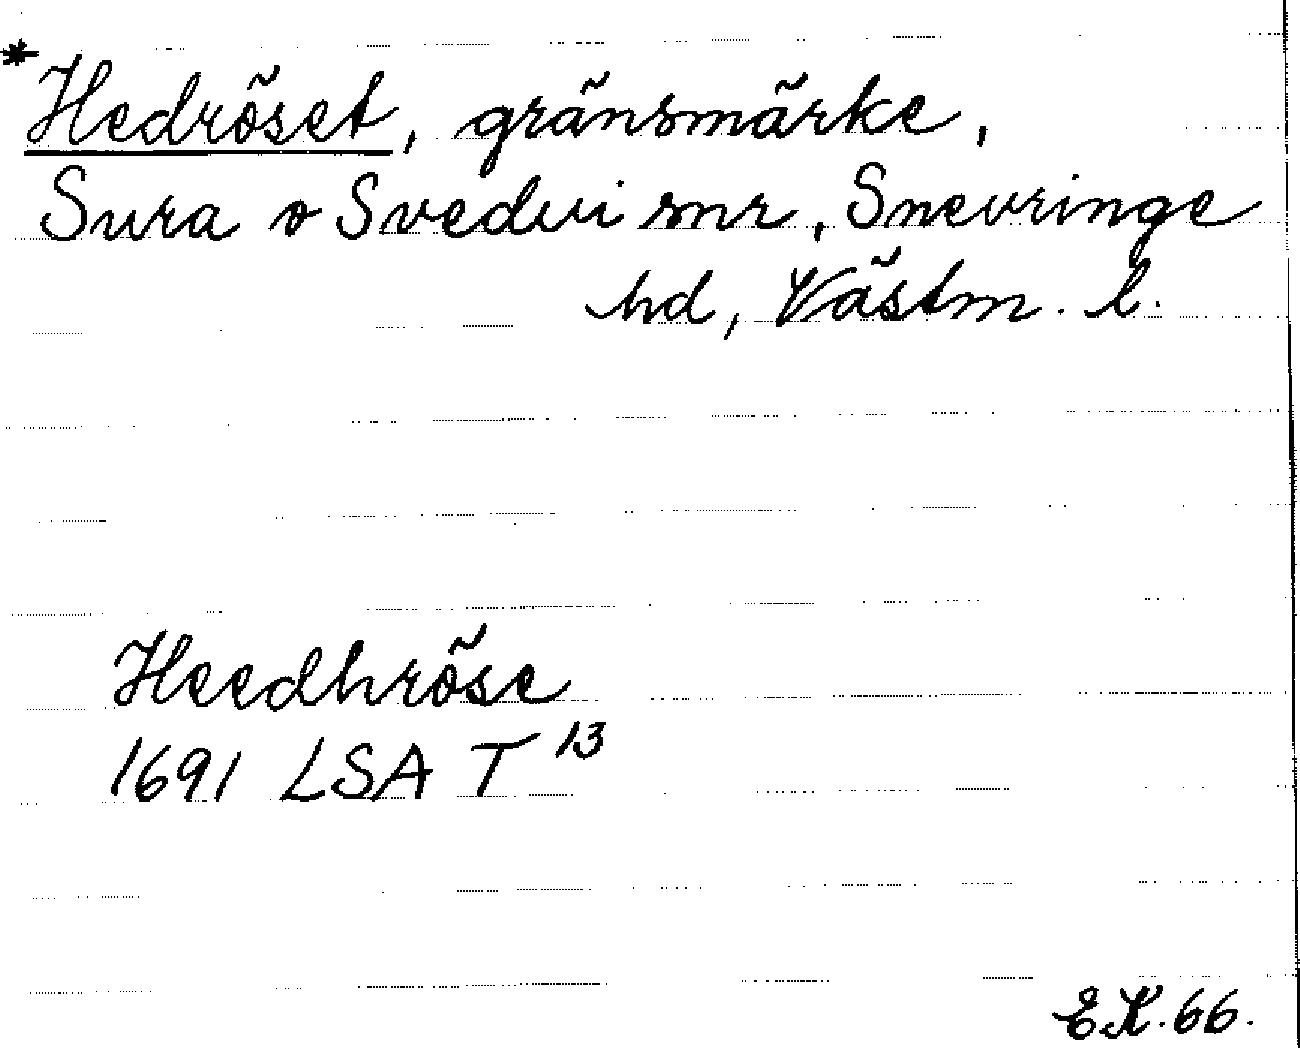 *Hedröset, gränsmärke,
Sura o Svedvi snr, Snevringe
hd, Västm. l.
Heedhröse
1691 LSA T 13
E.K. 66.